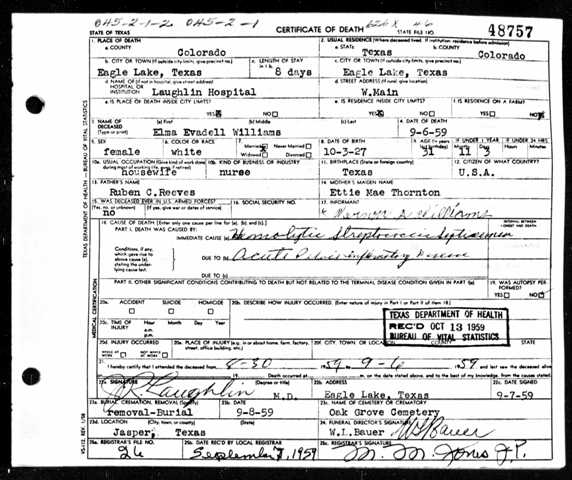 0H5-2-1-2 0H5-2-1
STATE OF TEXAS
CERTIFICATE OF DEATH
STATE FILE NO.
48757
1. PLACE OF DEATH
a. COUNTY
Colorado
2. USUAL RESIDENCE (Where deceased lived. If institution: residence before admission)
a. STATE
Texas
b. COUNTY
Colorado
b. CITY OR TOWN (If outside city limits, give precinct no.)
Eagle Lake, Texas
c. LENGTH OF STAY
8 days
c. CITY OR TOWN (If outside city limits, give precinct no.)
Eagle Lake, Texas
d. NAME OF (If not in hospital, give street address)
HOSPITAL OR
INSTITUTION
Laughlin Hospital
d. STREET ADDRESS (If rural, give location)
W.Main
e. IS PLACE OF DEATH INSIDE CITY LIMITS?
YES NO
e. IS RESIDENCE INSIDE CITY LIMITS?
YES NO
f. IS RESIDENCE ON A FARM?
YES NO
3. NAME OF
DECEASED
(Type or print)
(a) First (b) Middle (c) Last
Elma Evadell Williams
4. DATE OF DEATH
9-6-59
5. SEX
female
6. COLOR OR RACE
White
7. Married Never Married
Widowed Divorced
8. DATE OF BIRTH
10-3-27
9. AGE
31
IF UNDER 1 YEAR
11 3
IF UNDER 24 HRS.
10a. USUAL OCCUPATION (Give kind of work done
housewife
10b. KIND OF BUSINESS OR INDUSTRY
nurse
11. BIRTHPLACE (State or foreign country)
Texas
12. CITIZEN OF WHAT COUNTRY?
U.S.A.
13. FATHER'S NAME
Ruben C.Reeves
14. MOTHER'S MAIDEN NAME
Ettie Mae Thornton
15. WAS DECEASED EVER IN U.S. ARMED FORCES?
(Yes, no, or unknown) (If yes, give war or dates of service)
no
16. SOCIAL SECURITY NO.
17. INFORMANT
Williams
18. CAUSE OF DEATH (Enter only one cause per line for (a), (b), and (c).)
PART I. DEATH WAS CAUSED BY:
IMMEDIATE CAUSE (a)
Hemolytic Streptococcus Septicemia
INTERVAL BETWEEN
ONSET AND DEATH
Conditions, if any,
which gave rise to
above cause (a),
stating the under-
lying cause last.
DUE TO (b)
Acute Pelvic inflammatory Disease
DUE TO (c)
PART II. OTHER SIGNIFICANT CONDITIONS CONTRIBUTING TO DEATH BUT NOT RELATED TO THE TERMINAL DISEASE CONDITION GIVEN IN PART I(a)
19. WAS AUTOPSY PERFORMED?
YES NO
20a. ACCIDENT SUICIDE HOMICIDE
20b. DESCRIBE HOW INJURY OCCURRED. (Enter nature of injury in Part I or Part II of item 18.)
20c. TIME OF
INJURY
Hour Month Day Year
a.m.
p.m.
TEXAS DEPARTMENT OF HEALTH
REC'D OCT 13 1959
BUREAU OF VITAL STATISTICS
20d. INJURY OCCURRED
20e. PLACE OF INJURY (e.g. in or about home, farm, factory,
street, office building, etc.)
20f. CITY, TOWN, OR LOCATION COUNTY STATE
21. I hereby certify that I attended the deceased from 8-30 59 9-6 1959
Death occurred at m. on the date stated above, and to the best of my knowledge, from the causes stated.
22a. SIGNATURE (Degree or title)
Laughlin M.D.
22b. ADDRESS
Eagle Lake, Texas
22c. DATE SIGNED
9-7-59
23a. BURIAL, CREMATION, REMOVAL (Specify)
removal-Burial
23b. DATE
9-8-59
23c. NAME OF CEMETERY OR CREMATORY
Oak Grove Cemetery
23d. LOCATION (City, town, or county) (State)
Jasper, Texas
24. FUNERAL DIRECTOR'S SIGNATURE
W.L.Bauer W L Bauer
25a. REGISTRAR'S FILE NO.
26
25b. DATE REC'D BY LOCAL REGISTRAR
September 7, 1959
25c. REGISTRAR'S SIGNATURE
M. M. Jones J.P.
TEXAS DEPARTMENT OF HEALTH - BUREAU OF VITAL STATISTICS
MEDICAL CERTIFICATION